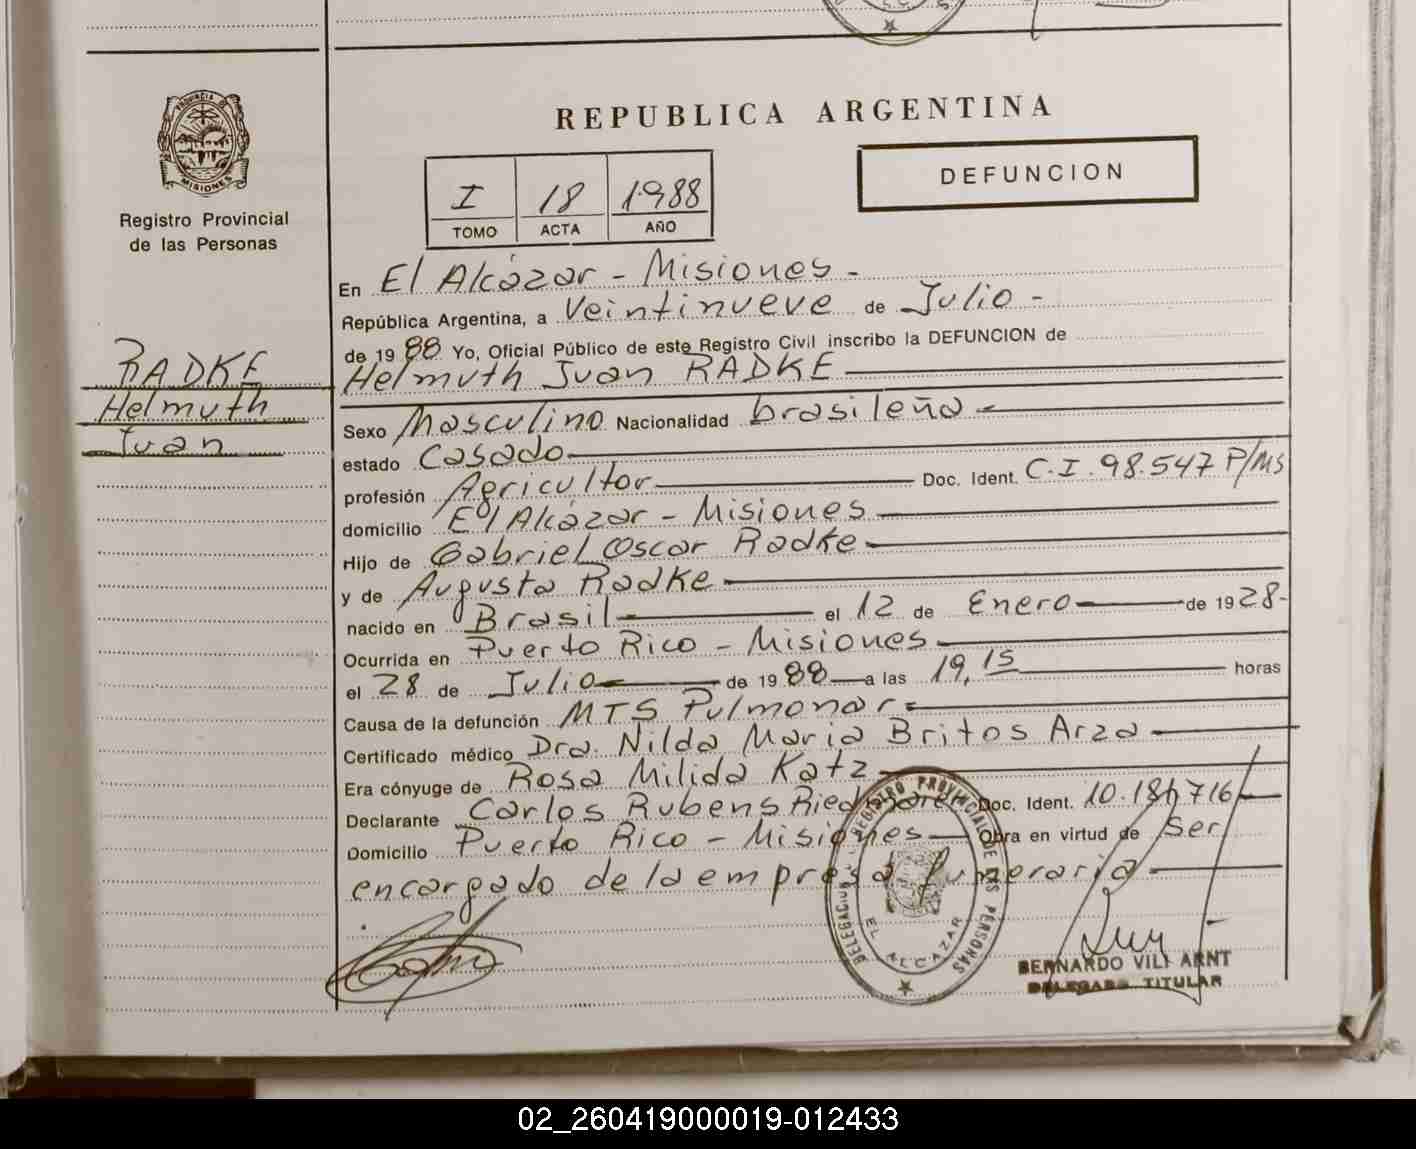 PROVINCIA DE
MISIONES
Registro Provincial
de las Personas
RADKE
Helmuth
Juan
REPUBLICA ARGENTINA
DEFUNCION
I 18 1988
TOMO ACTA AÑO
En El Alcázar - Misiones -
República Argentina, a Veintinueve de Julio -
de 1988 Yo, Oficial Público de este Registro Civil inscribo la DEFUNCION de
Helmuth Juan RADKE
Sexo Masculino Nacionalidad brasileña
estado Casado
profesión Agricultor Doc. Ident. C.I. 98.547 P/MS
domicilio El Alcázar - Misiones
Hijo de Gabriel Oscar Radke
y de Augusta Radke
nacido en Brasil el 12 de Enero de 1928-
Ocurrida en Puerto Rico - Misiones
el 28 de Julio de 1988 a las 19,15 horas
Causa de la defunción MTS Pulmonar
Certificado médico Dra. Nilda Maria Britos Arza
Era cónyuge de Rosa Milida Katz
Declarante Carlos Rubens Doc. Ident.
Domicilio Puerto Rico - Misiones Obra en virtud de Ser
encargado de la empresa funeraria
DELEGACION REGISTRO PROVINCIAL DE LAS PERSONAS
EL ALCAZAR
BERNARDO VILI ARNT
DELEGADO TITULAR
02_260419000019-012433